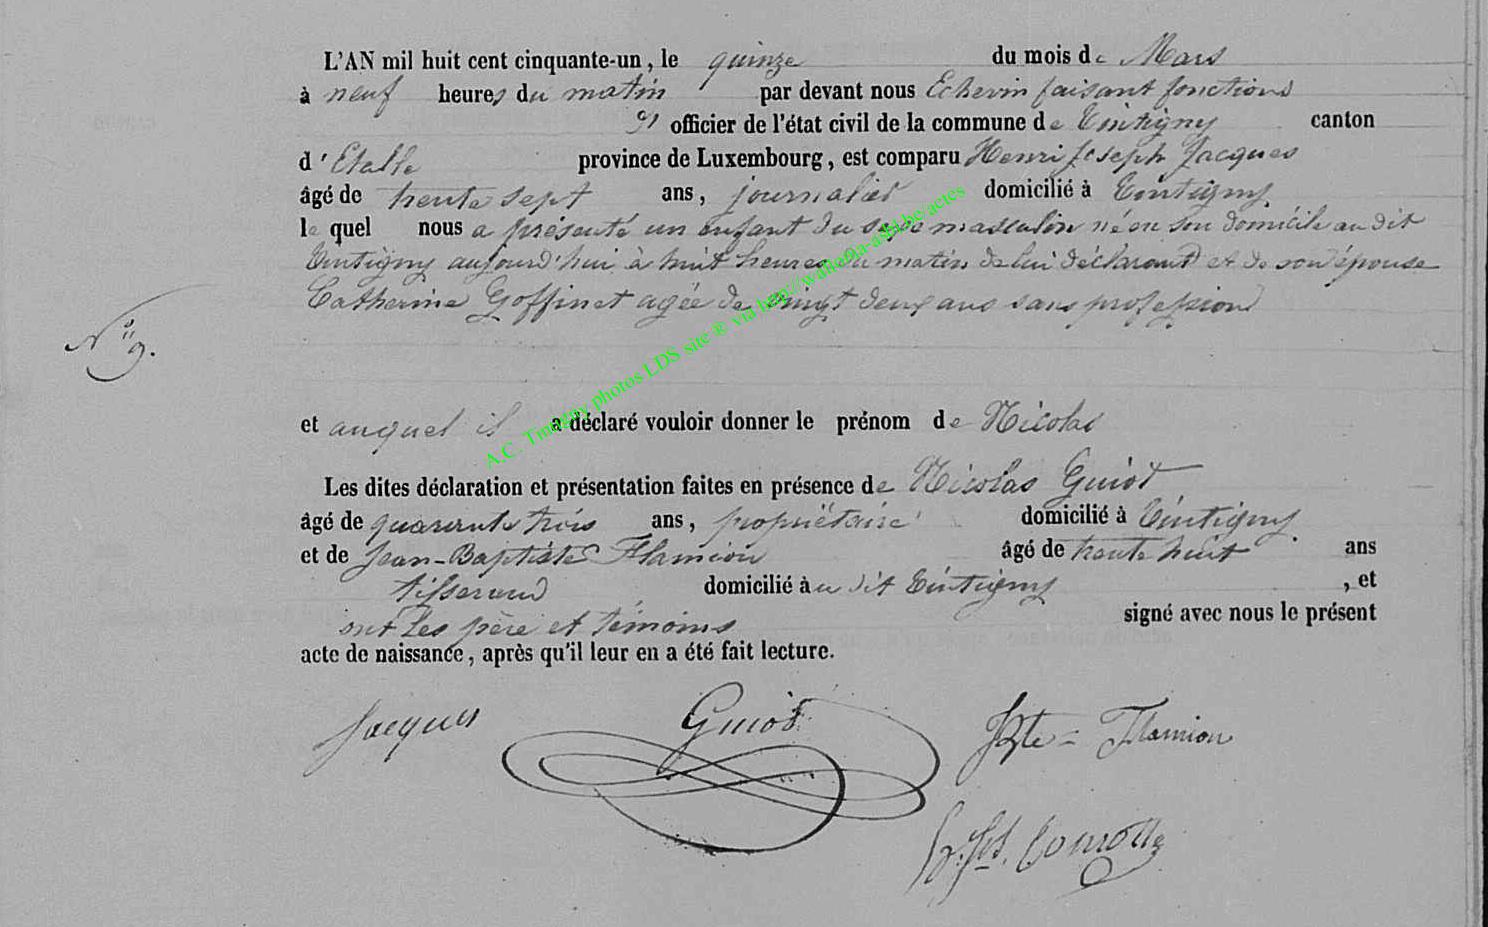 L'AN mil huit cent cinquante-un, le quinze du mois de Mars
à neuf heures du matin par devant nous Echevin faisant fonctions
d' officier de l'état civil de la commune de Tintigny canton
d'Etalle province de Luxembourg, est comparu Henri Joseph Jacques
âgé de trente sept ans, journalier domicilié à Tintigny
le quel nous a présenté un enfant du sexe masculin né en son domicile au dit
Tintigny aujourd'hui à huit heures du matin de lui déclarant et de son épouse
Catherine Goffinet agée de vingt deux ans sans profession
N° 9.
et auquel il a déclaré vouloir donner le prénom de Nicolas
Les dites déclaration et présentation faites en présence de Nicolas Guiot
âgé de quarante trois ans, propriétaire domicilié à Tintigny
et de Jean-Baptiste Flamion âgé de trente huit ans
tisserand domicilié au dit Tintigny , et
ont les père et témoins signé avec nous le présent
acte de naissance, après qu'il leur en a été fait lecture.
Jacques Guiot JBte = Flamion
A.C. Tintigny photos LDS site ® via http://wallonia-asbl.be/actes